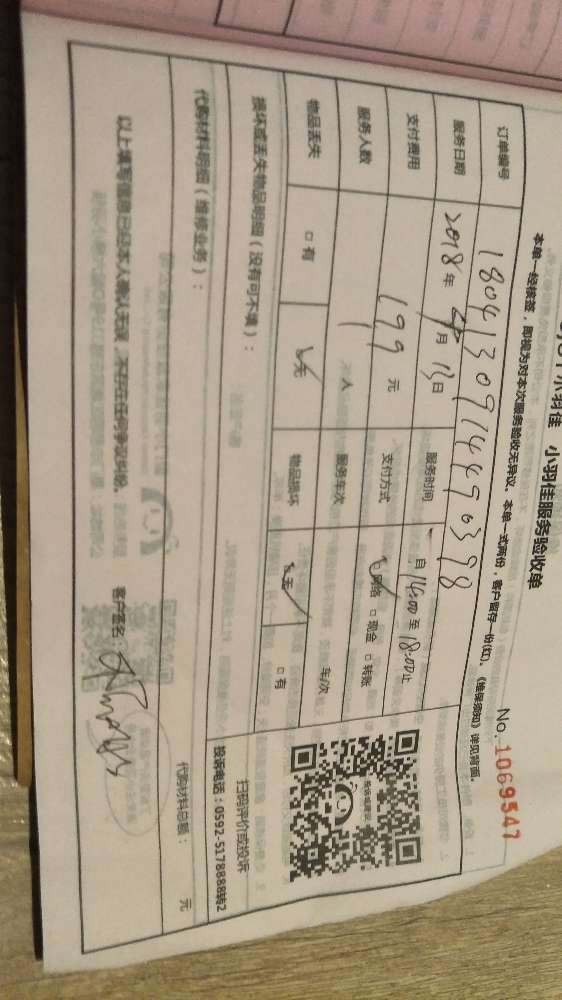 小羽佳 小羽佳服务验收单
No. 1069547
本单一经核签，即视为对本次服务验收无异议。本单一式两份，客户留存一份(红)。《维保须知》详见背面。
订单编号 180413091444590398
服务日期 2018年4月13日 服务时间 自14:00至18:00止
支付费用 199元 支付方式 ☑网络 □现金 □转账
服务人数 1人 服务车次 车次
物品丢失 □有 ☑无 物品损坏 ☑无 □有
损坏或丢失物品明细（没有可不填）：
扫码评价或投诉
投诉电话：0592-5178888转2
代购材料明细（维修业务）：
代购材料总额： 元
以上填写信息已经本人确认无误，不存在任何争议纠纷。
客户签名：